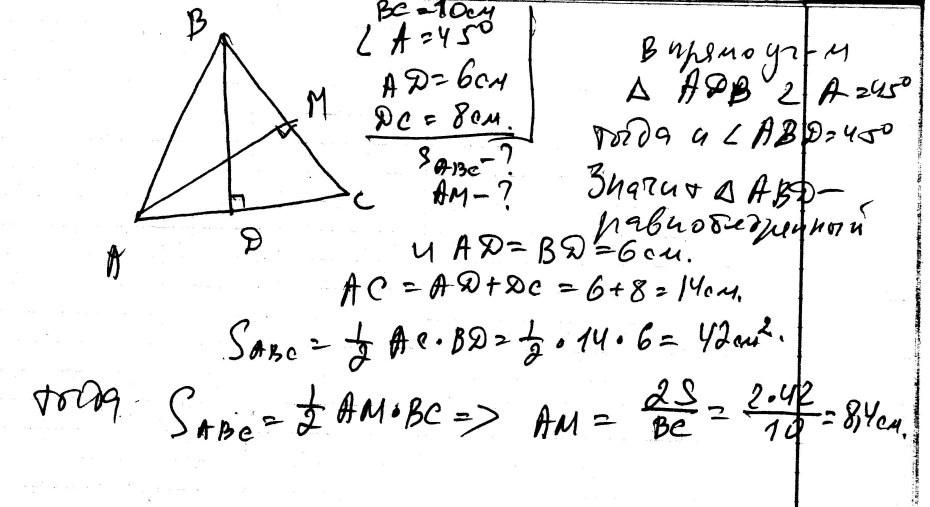 B
M
A
D
C
BC = 10 см
∠ A = 45°
AD = 6 см
DC = 8 см.
S ABC - ?
AM - ?
В прямоуг-м
Δ ADB ∠ A = 45°
тогда и ∠ ABD = 45°
Значит Δ ABD -
равнобедренный
и AD = BD = 6 см.
AC = AD + DC = 6 + 8 = 14 см.
S ABC = 1/2 AC · BD = 1/2 · 14 · 6 = 42 см².
тогда S ABC = 1/2 AM · BC => AM = 2S/BC = 2·42/10 = 8,4 см.